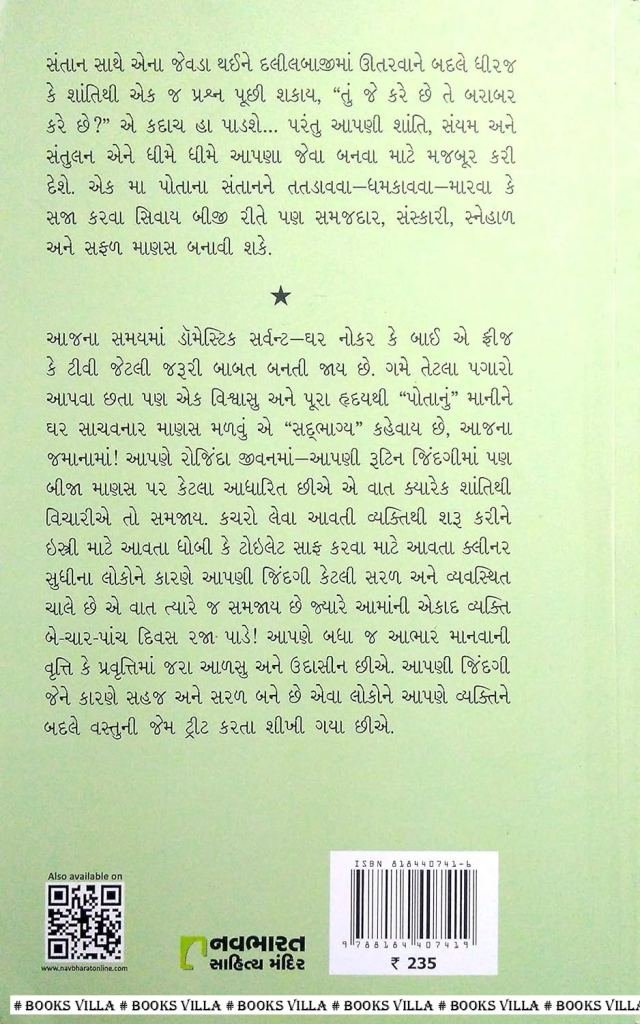 સંતાન સાથે એના જેવડા થઈને દલીલબાજીમાં ઊતરવાને બદલે ધીરજ
કે શાંતિથી એક જ પ્રશ્ન પૂછી શકાય, “તું જે કરે છે તે બરાબર
કરે છે?” એ કદાચ હા પાડશે... પરંતુ આપણી શાંતિ, સંયમ અને
સંતુલન એને ધીમે ધીમે આપણા જેવા બનવા માટે મજબૂર કરી
દેશે. એક મા પોતાના સંતાનને તતડાવવા–ધમકાવવા–મારવા કે
સજા કરવા સિવાય બીજી રીતે પણ સમજદાર, સંસ્કારી, સ્નેહાળ
અને સફળ માણસ બનાવી શકે.
★
આજના સમયમાં ડૉમેસ્ટિક સર્વન્ટ–ઘર નોકર કે બાઈ એ ફ્રીજ
કે ટીવી જેટલી જરૂરી બાબત બનતી જાય છે. ગમે તેટલા પગારો
આપવા છતા પણ એક વિશ્વાસુ અને પૂરા હૃદયથી “પોતાનું” માનીને
ઘર સાચવનાર માણસ મળવું એ “સદ્‌ભાગ્ય” કહેવાય છે, આજના
જમાનામાં! આપણે રોજિંદા જીવનમાં–આપણી રૂટિન જિંદગીમાં પણ
બીજા માણસ પર કેટલા આધારિત છીએ એ વાત ક્યારેક શાંતિથી
વિચારીએ તો સમજાય. કચરો લેવા આવતી વ્યક્તિથી શરૂ કરીને
ઇસ્ત્રી માટે આવતા ધોબી કે ટોઇલેટ સાફ કરવા માટે આવતા ક્લીનર
સુધીના લોકોને કારણે આપણી જિંદગી કેટલી સરળ અને વ્યવસ્થિત
ચાલે છે એ વાત ત્યારે જ સમજાય છે જ્યારે આમાંની એકાદ વ્યક્તિ
બે-ચાર-પાંચ દિવસ રજા પાડે! આપણે બધા જ આભાર માનવાની
વૃત્તિ કે પ્રવૃત્તિમાં જરા આળસુ અને ઉદાસીન છીએ. આપણી જિંદગી
જેને કારણે સહજ અને સરળ બને છે એવા લોકોને આપણે વ્યક્તિને
બદલે વસ્તુની જેમ ટ્રીટ કરતા શીખી ગયા છીએ.
Also available on
www.navbharatonline.com
નવભારત
સાહિત્ય મંદિર
ISBN 818440741-6
9 788184 407419
₹ 235
# BOOKS VILLA # BOOKS VILLA # BOOKS VILLA # BOOKS VILLA # BOOKS VILLA # BOOKS VILLA